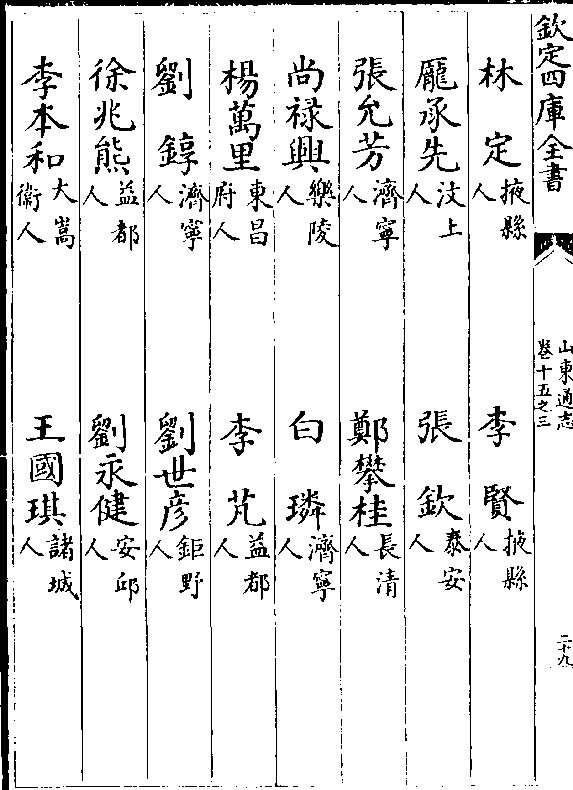 欽定四庫全書
山東通志
卷十五之三
二十九
林定 掖縣人 李賢 掖縣人
龎承先 汶上人 張欽 泰安人
張允芳 濟寧人 鄭攀桂 長清人
尚禄興 樂陵人 白璘 濟寧人
楊萬里 東昌府人 李芃 益都人
劉錞 濟寧人 劉世彦 鉅野人
徐兆熊 益都人 劉永健 安邱人
李本和 大嵩衛人 王國琪 諸城人